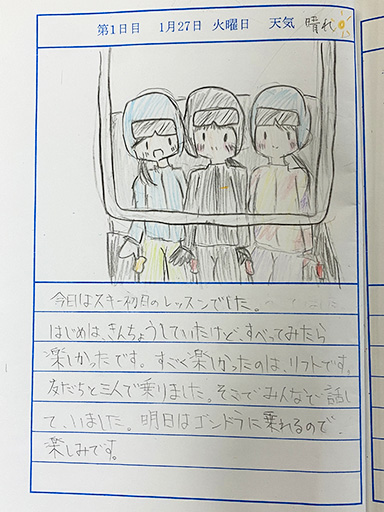 第1日目 1月27日 火曜日 天気 晴れ
今日はスキー初日のレッスンでした。
はじめは、きんちょうしていたけど、すべってみたら
楽しかったです。すごく楽しかったのは、リフトです。
友だちと三人で乗りました。そこでみんなで話し
て、いました。明日はゴンドラに乗れるので、
楽しみです。